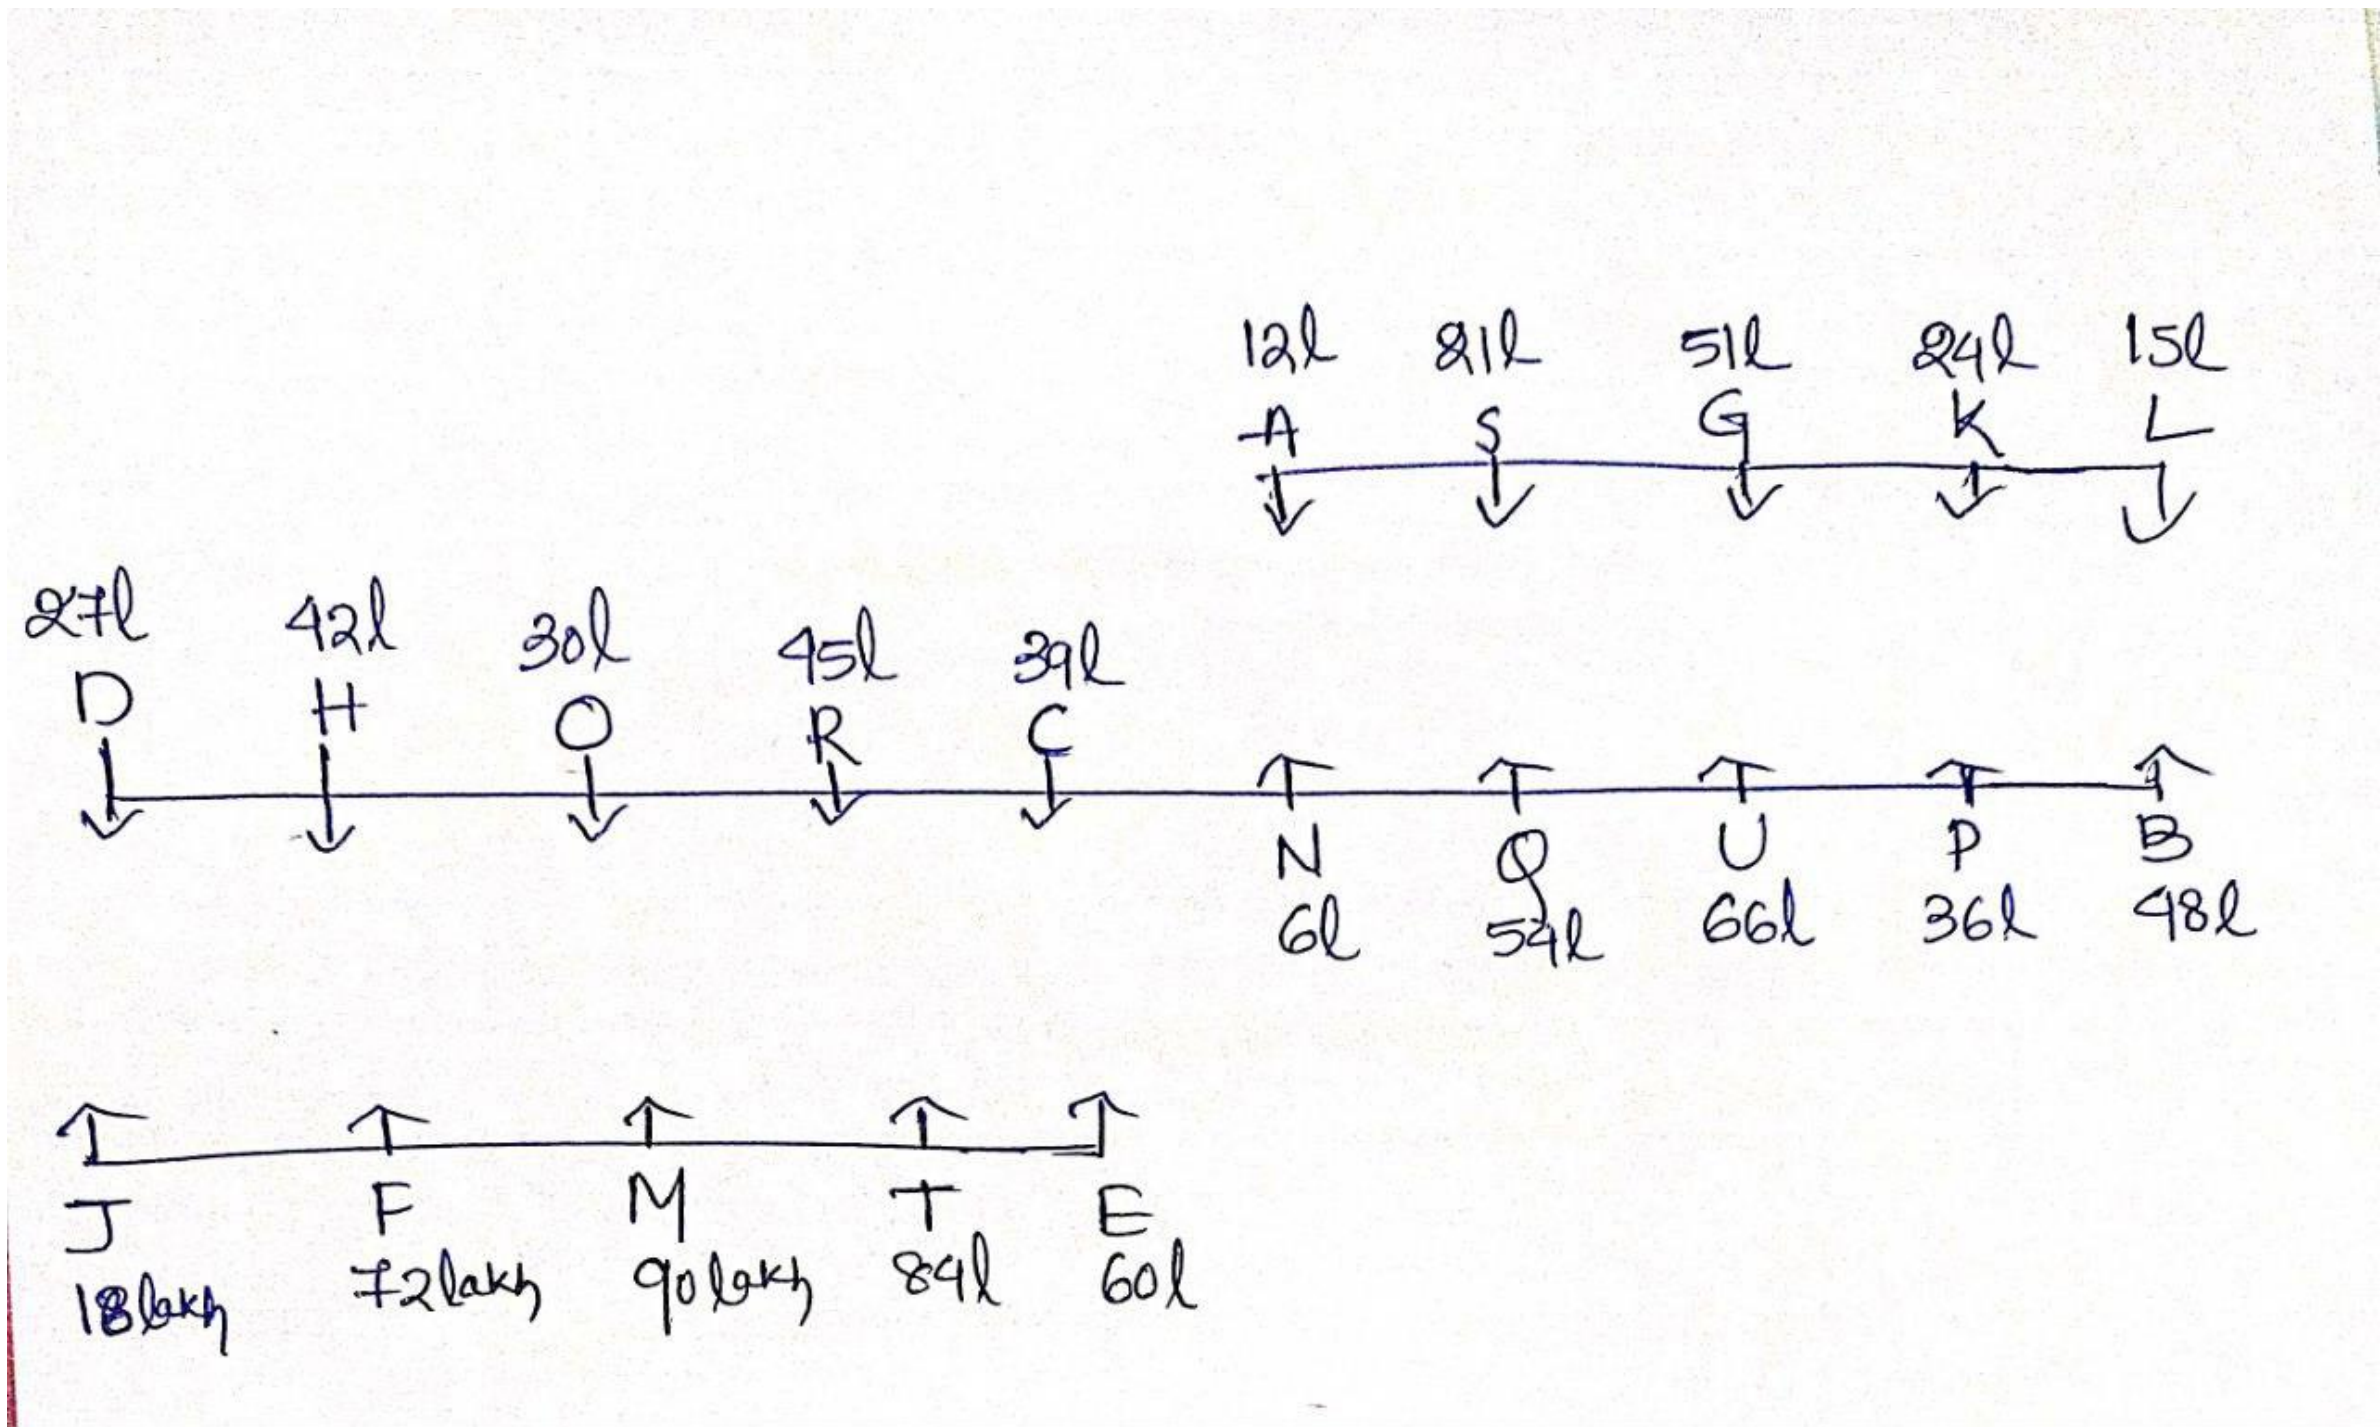 12l 21l 51l 24l 15l
A S G K L
27l 42l 30l 45l 39l
D H O R C
N Q U P B
6l 54l 66l 36l 48l
J F M T E
18 lakh 72 lakh 90 lakh 84l 60l